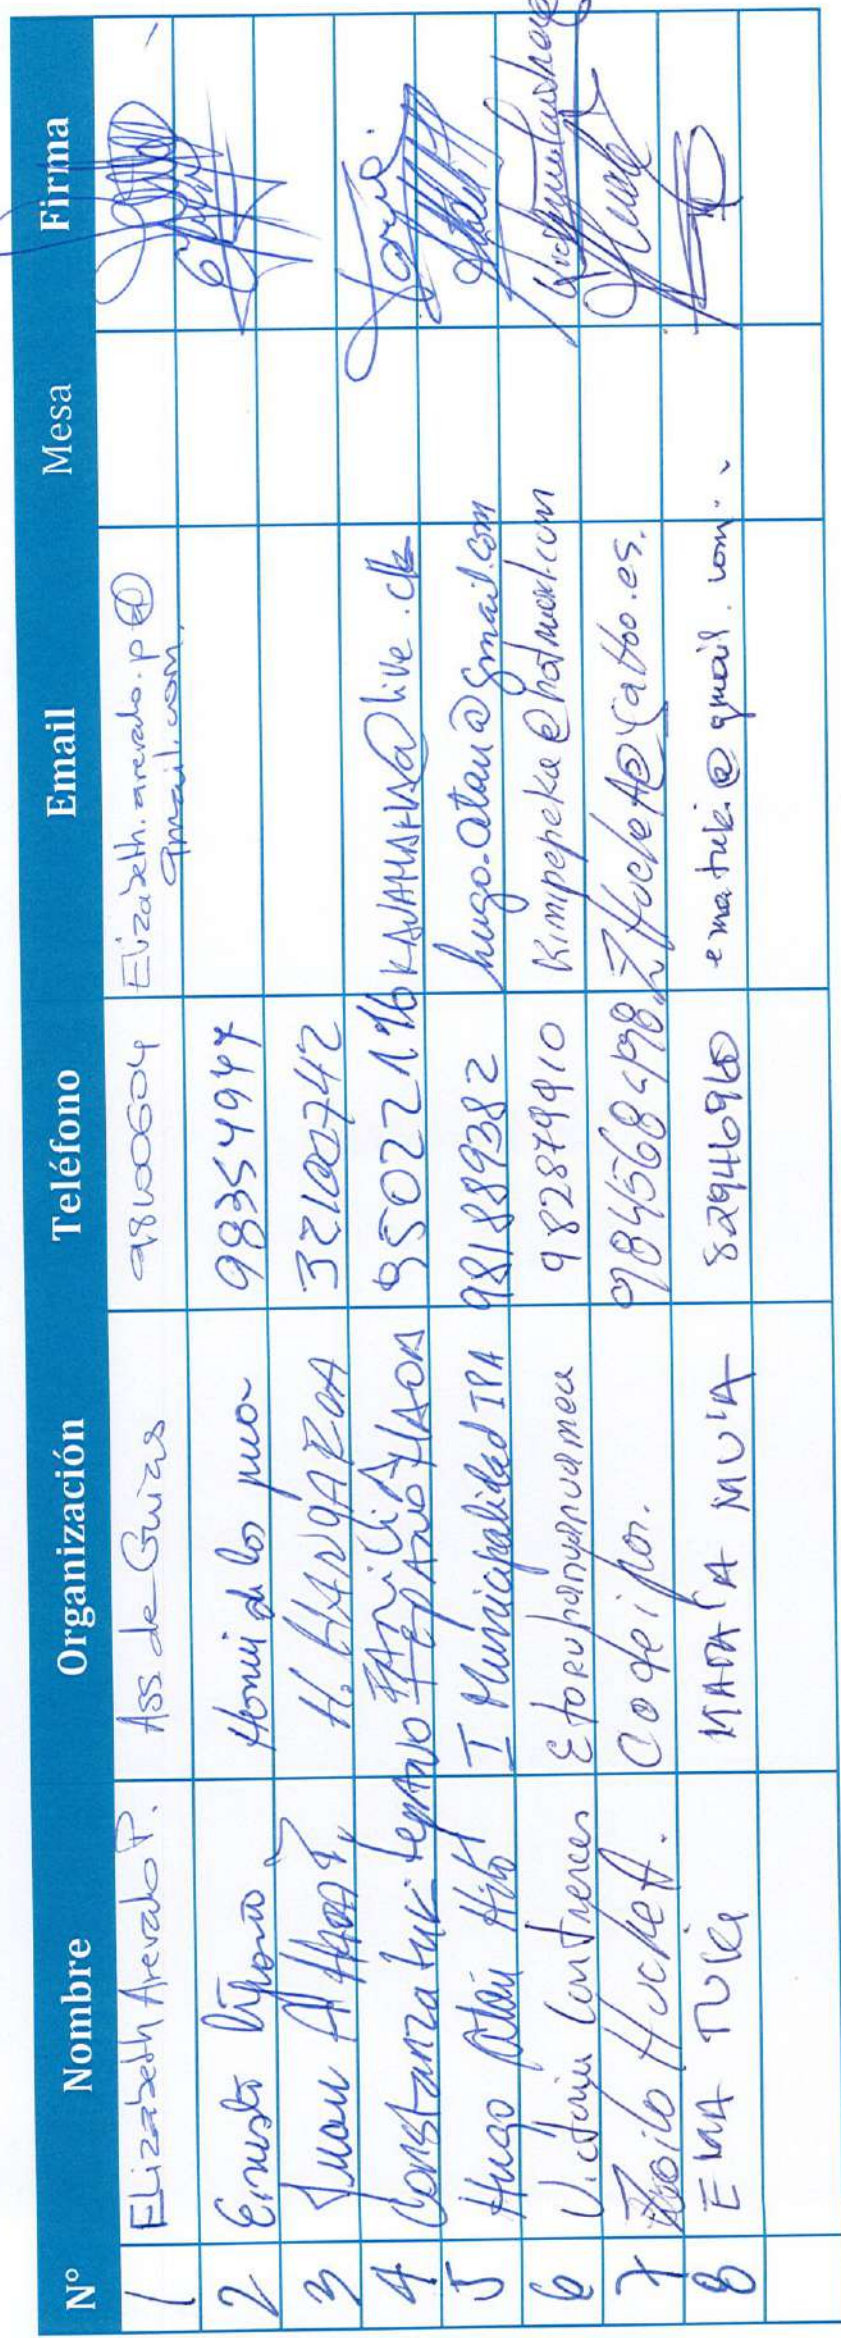 N° Nombre Organización Teléfono Email Mesa Firma
1 Elizabeth Arevalo P. Ass. de Guias 98100604 Elizabeth.arevalo.p@
gmail.com
2 Ernesto Honui de los 98354947
3 Juan H. HANGAROA 32100742
4 Constanza tuki tepano FAMILIA TEPANO HAOA 95022196 @live.cl
5 Hugo Atán Hito I Municipalidad IPA 981889382 hugo.atan@gmail.com
6 Victoria Contreras 982879910 Kimipepeka@hotmail.com
7 Zoilo Hucke A. Codeipa. 984568498 ZHuckeA@Yahoo.es.
8 EMA TUKI MATA'A MU'A 82946960 ematuki@gmail.com.